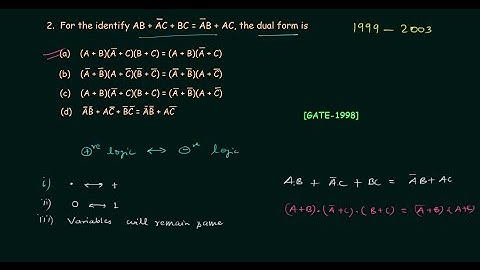 2. For the identify AB + A̅C + BC = A̅B + AC, the dual form is
1999 - 2003
(a) (A + B)(A̅ + C)(B + C) = (A + B)(A̅ + C)
(b) (A̅ + B̅)(A + C̅)(B̅ + C̅) = (A̅ + B̅)(A + C̅)
(c) (A + B)(A̅ + C)(B + C) = (A̅ + B)(A + C)
(d) A̅B̅ + AC̅ + B̅C̅ = A̅B̅ + AC̅
[GATE-1998]
⊕ve logic ↔ ⊖ve logic
i) • ↔ +
ii) 0 ↔ 1
iii) Variables will remain same
AB + A̅C + BC = A̅B + AC
(A+B)·(A̅+C)·(B+C) = (A̅+B)·(A+C)